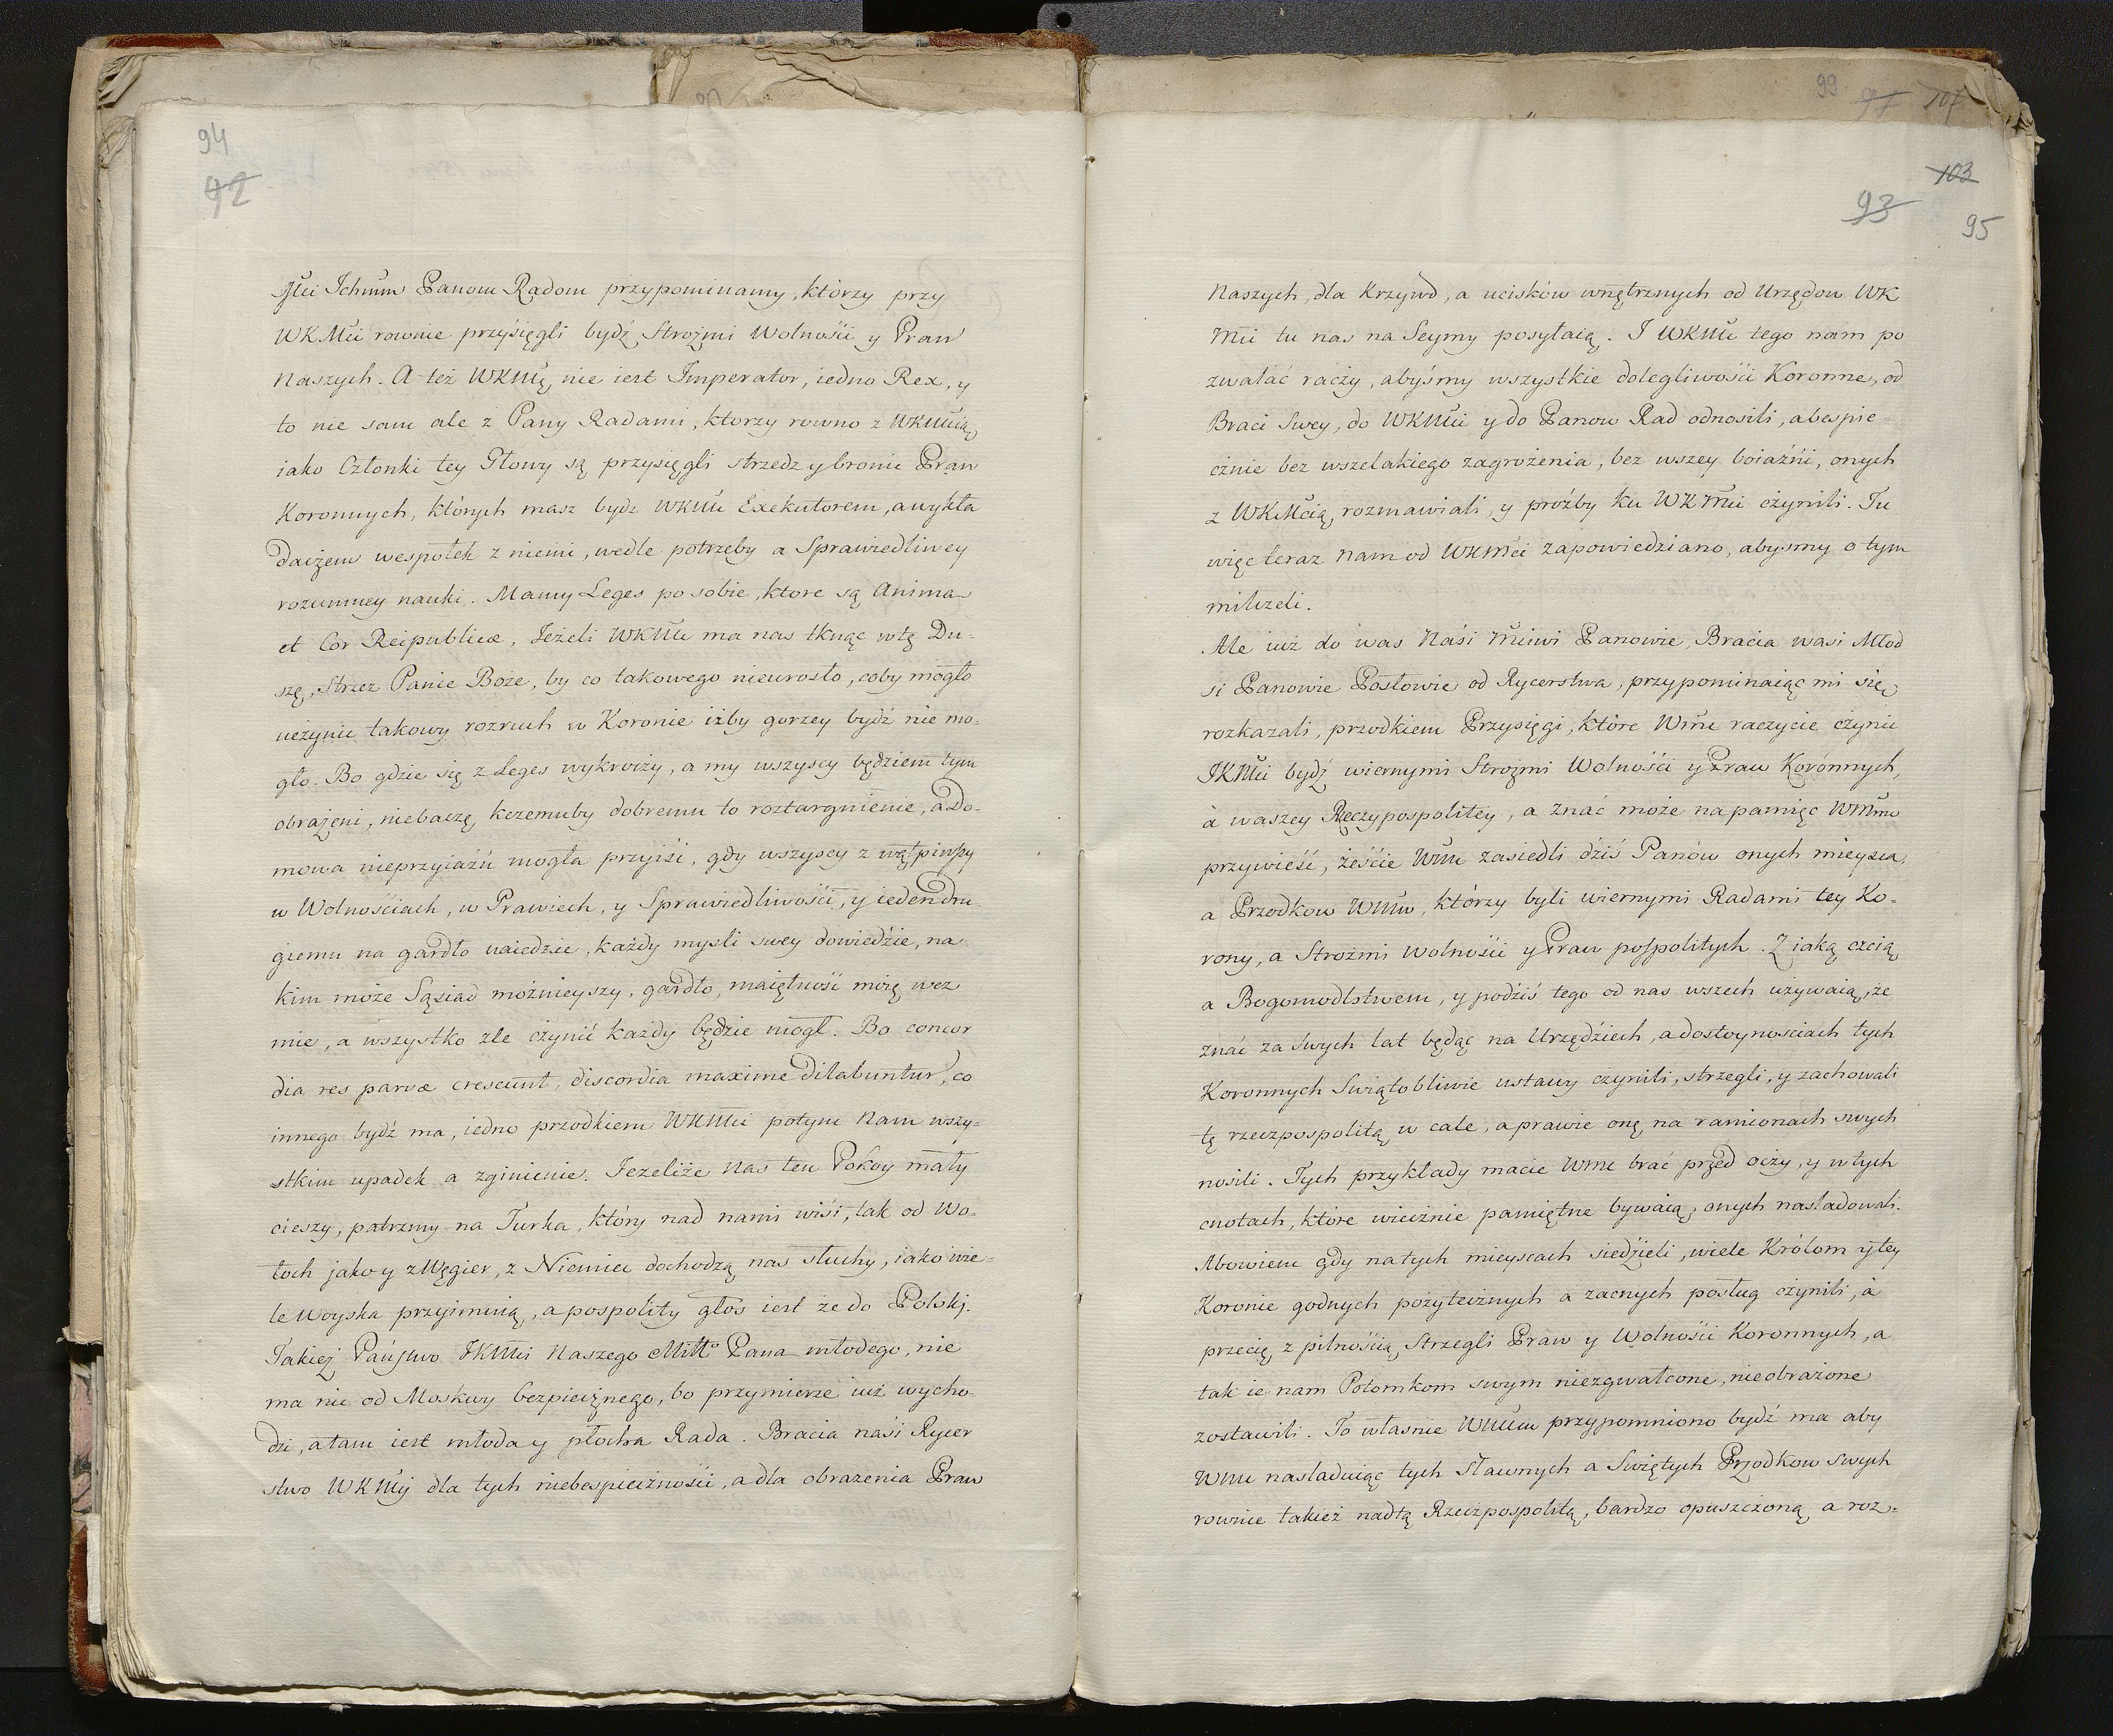 94
92
Mci Ichmm Panom Radom przypominamy, którzy przy
WKMci rownie przysięgli bydź Strożmi Wolności y Praw
Naszych. A też WKMć, nie iest Imperator, iedno Rex, y
to nie sam ale z Pany Radami, ktorzy rowno z WKMcią,
iako Członki tey Głowy są przysięgli strzedz y bronic Praw
Koronnych, których masz bydz WKMć Exekutorem, a wykła
daczem wespołek z niemi, wedle potrzeby a Sprawiedliwey
rozumney nauki. Mamy Leges po sobie, ktore są Anima
et Cor Reipublicæ, Jeżeli WKMć ma nas tknąc w tę Du-
szę, Strzez Panie Boże, by co takowego nieurosło, coby mogło
uczynic takowy rozruch w Koronie iżby gorzey bydź nie mo-
gło. Bo gdzie się z Leges wykroczy, a my wszyscy będziem tym
obrażeni, niebaczę, kczemuby dobremu to roztargnienie, a Do-
mowa nieprzyiaźń mogła przyiśi, gdy wszyscy z wątpiwszy
w Wolnościach, w Prawiech, y Sprawiedliwości, y ieden dru
giemu na gardło uaiedzie, każdy mysli swey dowiedźie, na
kim może Sąsiad możnieyszy, gardło, maiętność moię wez
mie, a wszystko zle czynić każdy będzie mogł. Bo concor
dia res parvæ crescunt, discordia maxime dilabuntur, co
innego bydź ma, iedno przodkiem WKMci potym Nam wszy-
stkim upadek a zginienie. Jezeliże nas ten Pokoy mały
cieszy, patrzmy na Turka, który nad nami wiśi, tak od Wo-
łoch jako y z Węgier, z Niemiec dochodzą nas słuchy, iako wie-
le Woyska przyimuią, a pospolity głos iest że do Polski.
Takiej Państwo JKMci Naszego Miłło Pana młodego, nie
ma nic od Moskwy bezpiecznego, bo przymierze iuż wycho-
dzi, a tam iest młoda y płocha Rada. Bracia naśi Rycer
stwo WKMci dla tych niebespieczności, a dla obrazenia Praw
99 97 107
103
93
95
Naszych, dla Krzywd, a ucisków wnętrznych od Urzędow WK
Mci tu nas na Seymy posyłaią. I WKMć tego nam po
zwalać raczy, abyśmy wszystkie dolegliwości Koronne, od
Braci Swey, do WKMci y do Panow Rad odnosili, a bespie-
cznie bez wszelakiego zagrożenia, bez wszey boiaźni, onych
z WKMcią, rozmawiali, y prożby ku WKMci czynili. Tu
więc teraz Nam od WKMci zapowiedziano, abysmy o tym
milczeli.
Ale iuż do was Náśi Mciwi Panowie, Bracia wasi Młod
si Panowie Posłowie od Rycerstwa, przypominaiąc mi się
rozkazali, przodkiem Przysięgi, które Wmc raczycie czynic
JKMci bydź wiernymi Strożmi Wolności y Praw Korónnych,
à waszey Rzeczypospolitey, a znać może na pamięc WMm
przywieść, żeście Wmc zasiedli dźiś Panów onych mieysca,
a Przodkow WMm, którzy byli wiernymi Radami tey Ko-
rony, a Strożmi Wolności y Praw pospolitych. Z iaką czcią
a Bogomodlstwem, y podziś tego od nas wszech używaią, że
znać za swych lat będąc na Urzędźiech, a dostoynosciach tych
Koronnych Swiątobliwie ustawy czynili, strzegli, y zachowali
tę rzeczpospolitą w cale, a prawie onę na ramionach swych
nosili. Tych przykłady macie Wmc brać przed oczy, y w tych
cnotach, które wiecznie pamiętne bywaią, onych nasladowali.
Abowiem gdy na tych mieyscach siedźieli, wiele Królom y tey
Koronie godnych pożytecznych a zacnych posług czynili, à
przecię z pilnością, Strzegli Praw y Wolności Koronnych, a
tak ie nam Potomkom swym niezgwałcone, nieobrażone
zostawili. To własnie WMciom przypomniono bydź ma aby
Wmc nasladuiąc tych Sławnych a Swiętych Przodkow swych
rownie takież nad tą Rzecząpospolitą, bardzo opuszczoną a roz-